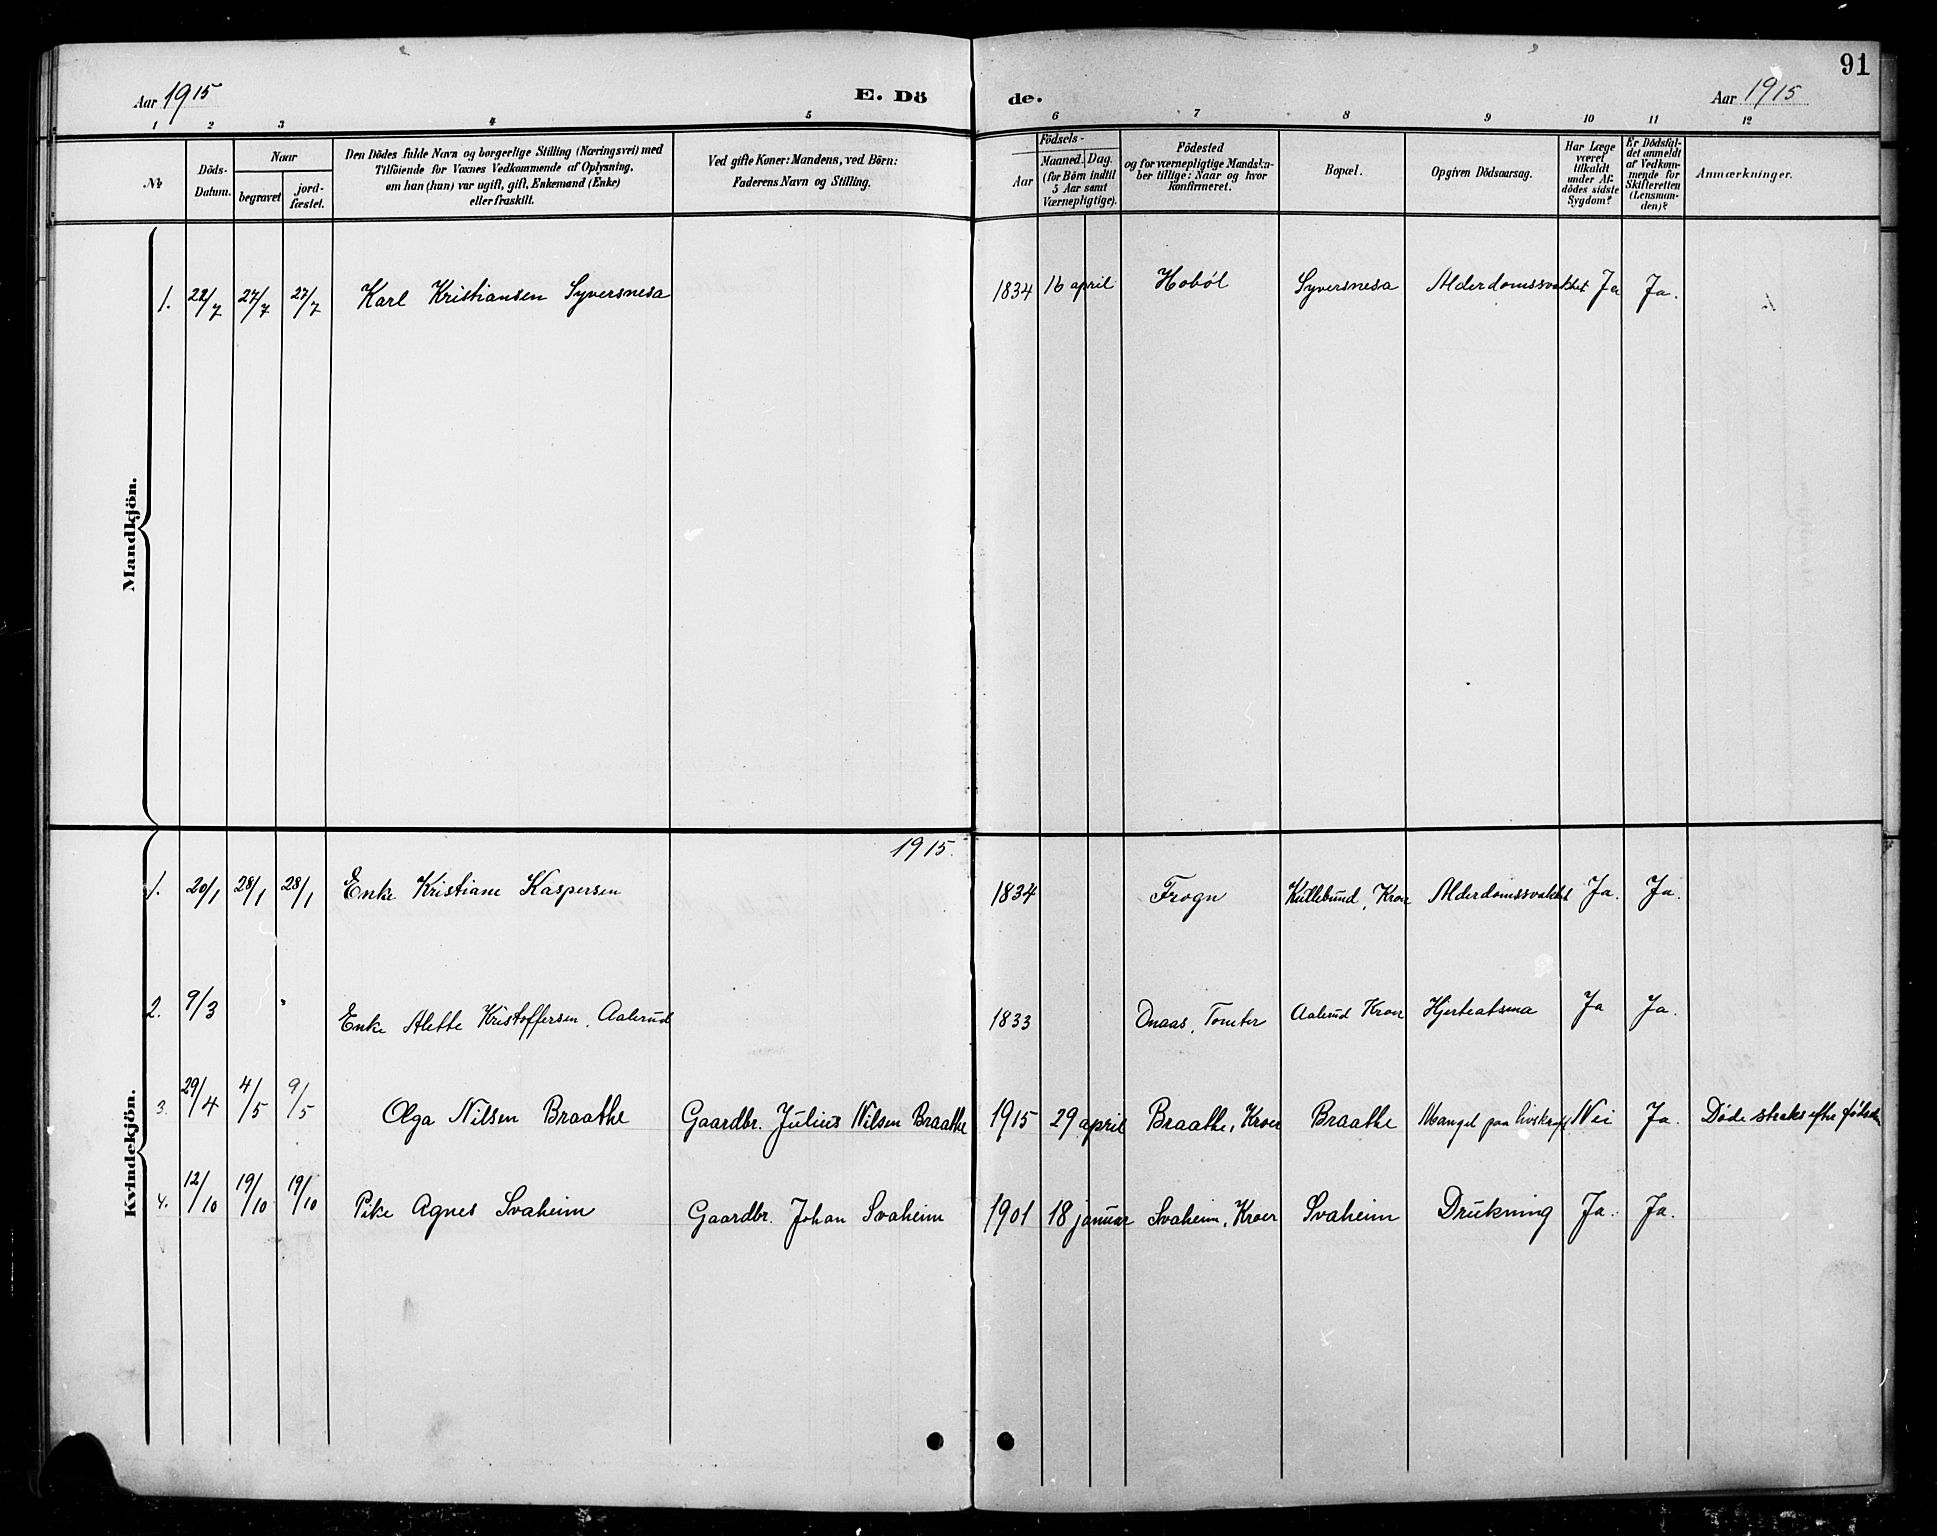 91
Aar 1915 E. Dö de. Aar 1915
1 2 3 4 5 6 7 8 9 10 11 12
№
Döds-
Datum.
Naar
begravet
jord-
fæstet.
Den Dödes fulde Navn og borgerlige Stilling (Næringsvei) med
Tilföiende for Voxnes Vedkommende af Oplysning,
om han (hun) var ugift, gift, Enkemand (Enke)
eller fraskilt.
Ved gifte Koner: Mandens, ved Börn:
Faderens Navn og Stilling.
Födsels-
Aar
Maaned. Dag.
(for Börn indtil
5 Aar samt
Værnepligtige).
Födested
og for værnepligtige Mandska-
ber tillige: Naar og hvor
konfirmeret.
Bopæl.
Opgiven Dödsaarsag.
Har Læge
været
tilkaldt
under Af-
dödes sidste
Sygdom?
Er Dödsfal-
det anmeldt
af Vedkom-
mende for
Skifteretten
(Lensman-
den)?
Anmærkninger.
Mandkjön.
1. 22/7 27/7 27/7 Karl Kristiansen Syversnesa 1834 16 april Hobøl Syversnesa Alderdomssvakhet Ja Ja.
1915.
Kvindekjön.
1. 20/1 28/1 28/1 Enke Kristiane Kaspersen 1834 Frogn Kroer Alderdomssvakhet Ja. Ja.
2. 9/3 Enke Alette Kristoffersen, Aalerud 1833 Tomter Aalerud Kroer Ja Ja.
3. 29/4 4/5 9/5 Olga Nilsen Braathe Gaardbr. Julius Nilsen Braathe 1915 29 april Braathe, Kroer Braathe Mangel paa livskraft Nei Ja. Døde straks efter fødselen
4. 12/10 19/10 19/10 Pike Agnes Svaheim Gaardbr. Johan Svaheim 1901 18 januar Svaheim, Kroer Svaheim Drukning Ja. Ja.